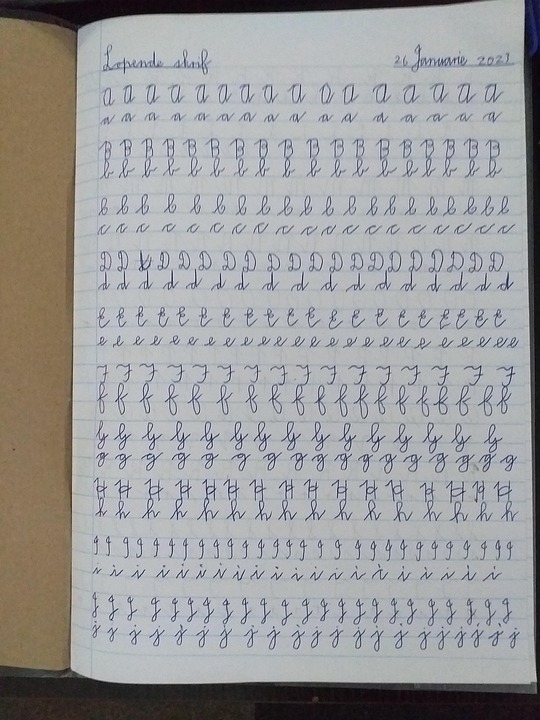 Lopende skrif 26 Januarie 2021
A A A A A A A A A A A A A A A A
a a a a a a a a a a a a a a a a
B B B B B B B B B B B B B B B B B B
b b b b b b b b b b b b b b b b b b
C C C C C C C C C C C C C C C C C C C C
c c c c c c c c c c c c c c c c c c c c
D D D D D D D D D D D D D D D D D D D D
d d d d d d d d d d d d d d d d d d
E E E E E E E E E E E E E E E E E E E E
e e e e e e e e e e e e e e e e e e e e e e e e e
F F F F F F F F F F F F F F F F
f f f f f f f f f f f f f f f f f f f
G G G G G G G G G G G G G G G
g g g g g g g g g g g g g g g g g
H H H H H H H H H H H H H H H H H
h h h h h h h h h h h h h h h h h h
I I I I I I I I I I I I I I I I I I I I I I I I
i i i i i i i i i i i i i i i i i i i i i
J J J J J J J J J J J J J J J J J J J J J J
j j j j j j j j j j j j j j j j j j j j